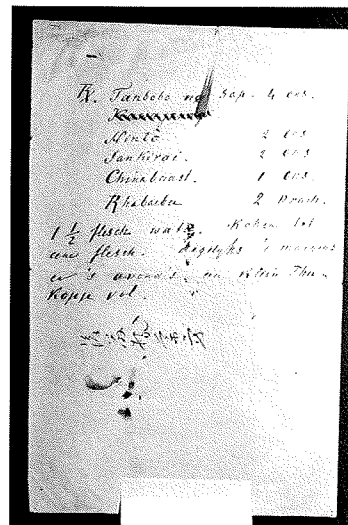 R. Tanbobo no sap. 4 ons.
Ninto 2 ons
Sankirai. 2 ons
Chinabaast. 1 ons.
Rhabarber 2 Drach.
1 1/2 flesch wat. Koken tot
eene flesch. dagelyks 's morgens
en 's avonds een klein Thee-
kopje vol.